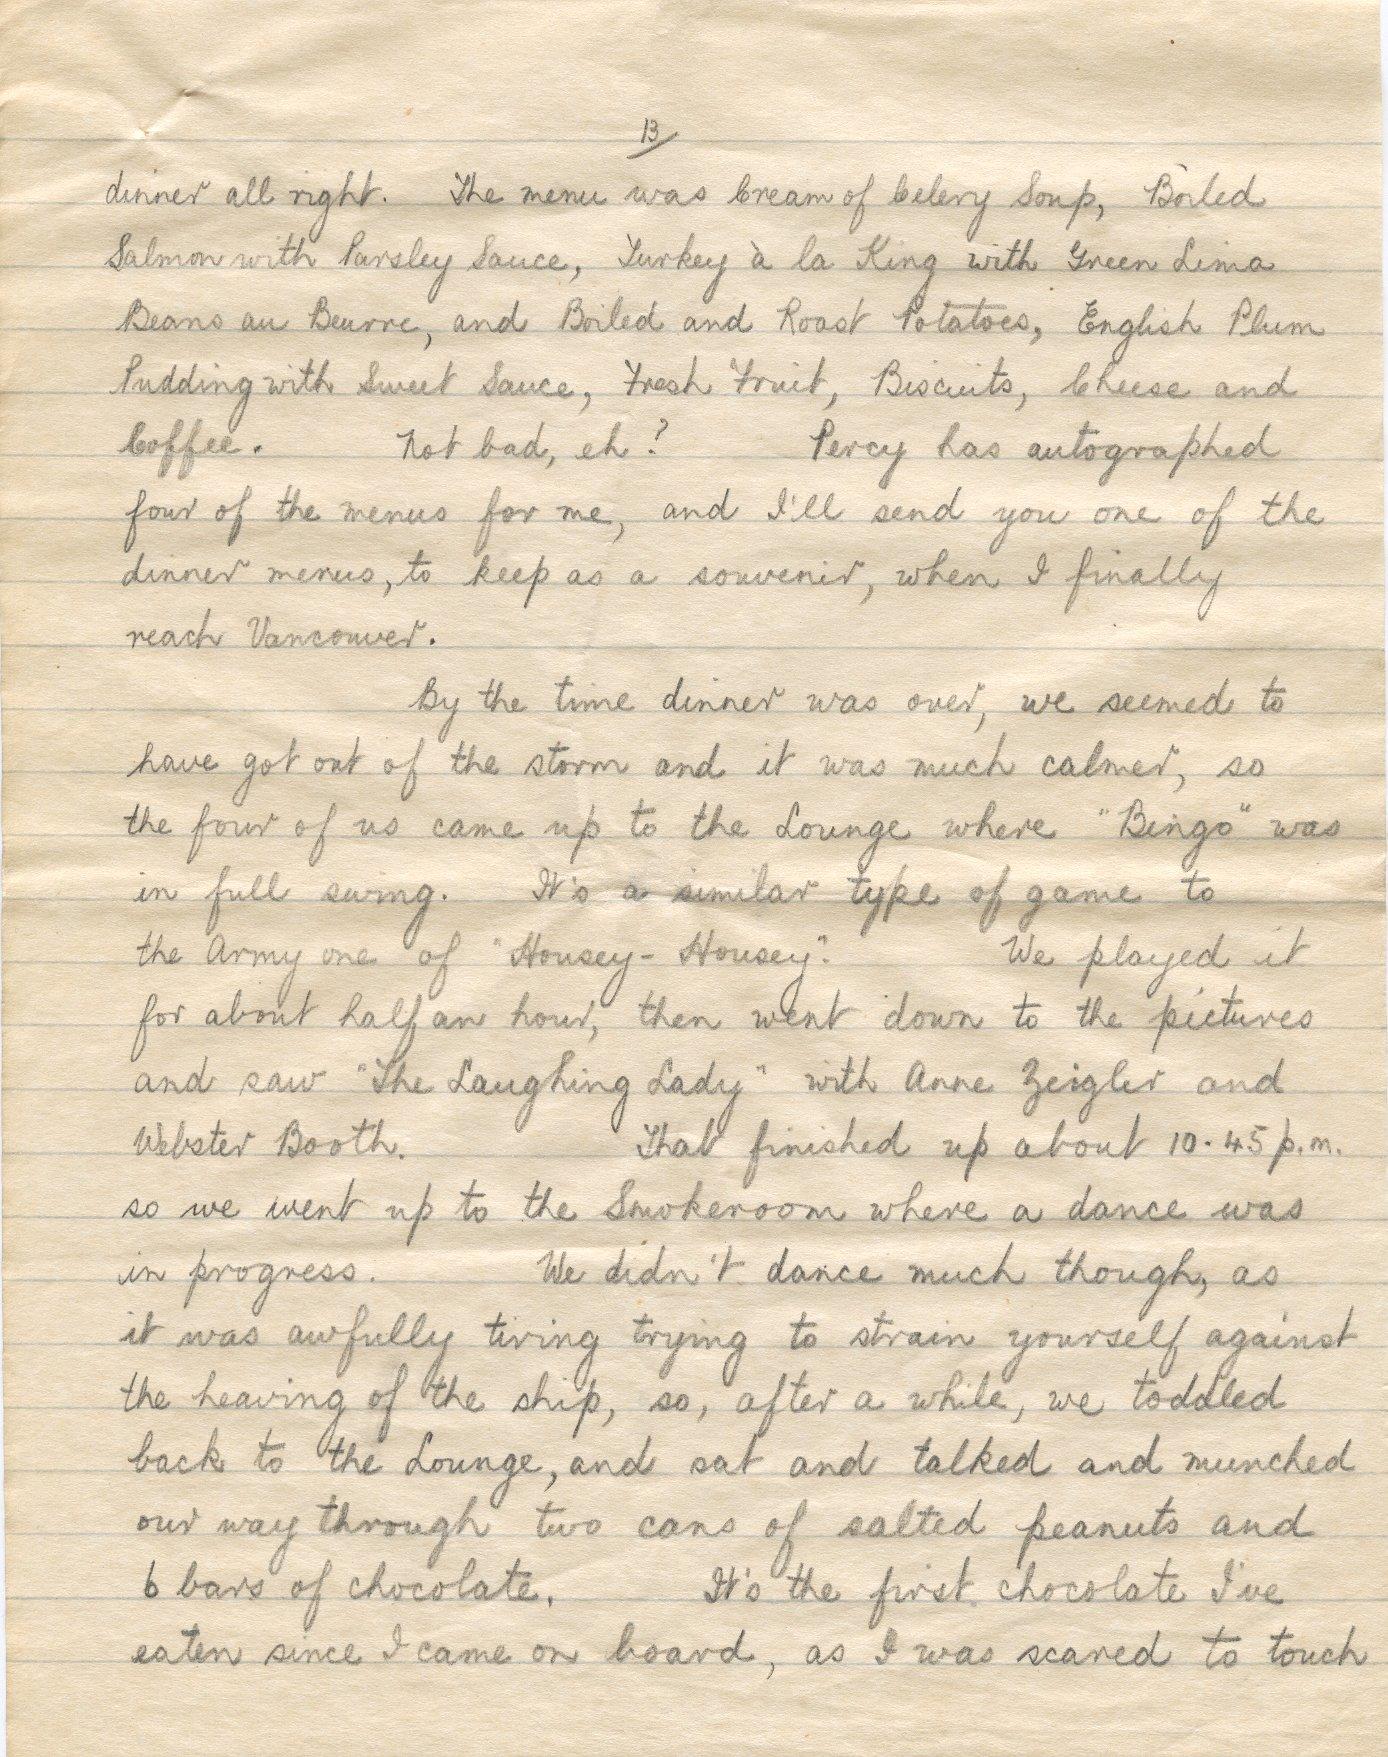 13
dinner all right. The menu was Cream of Celery Soup, Boiled
Salmon with Parsley Sauce, Turkey à la King with Green Lima
Beans au Beurre, and Boiled and Roast Potatoes, English Plum
Pudding with Sweet Sauce, Fresh Fruit, Biscuits, Cheese and
Coffee. Not bad, eh? Percy has autographed
four of the menus for me, and I'll send you one of the
dinner menus, to keep as a souvenir, when I finally
reach Vancouver.
By the time dinner was over, we seemed to
have got out of the storm and it was much calmer, so
the four of us came up to the Lounge where "Bingo" was
in full swing. It's a similar type of game to
the Army one of "Housey-Housey". We played it
for about half an hour, then went down to the pictures
and saw "The Laughing Lady" with Anne Zeigler and
Webster Booth. That finished up about 10.45 p.m.
so we went up to the Smokeroom where a dance was
in progress. We didn't dance much though, as
it was awfully tiring trying to strain yourself against
the heaving of the ship, so, after a while, we toddled
back to the Lounge, and sat and talked and munched
our way through two cans of salted peanuts and
6 bars of chocolate. It's the first chocolate I've
eaten since I came on board, as I was scared to touch